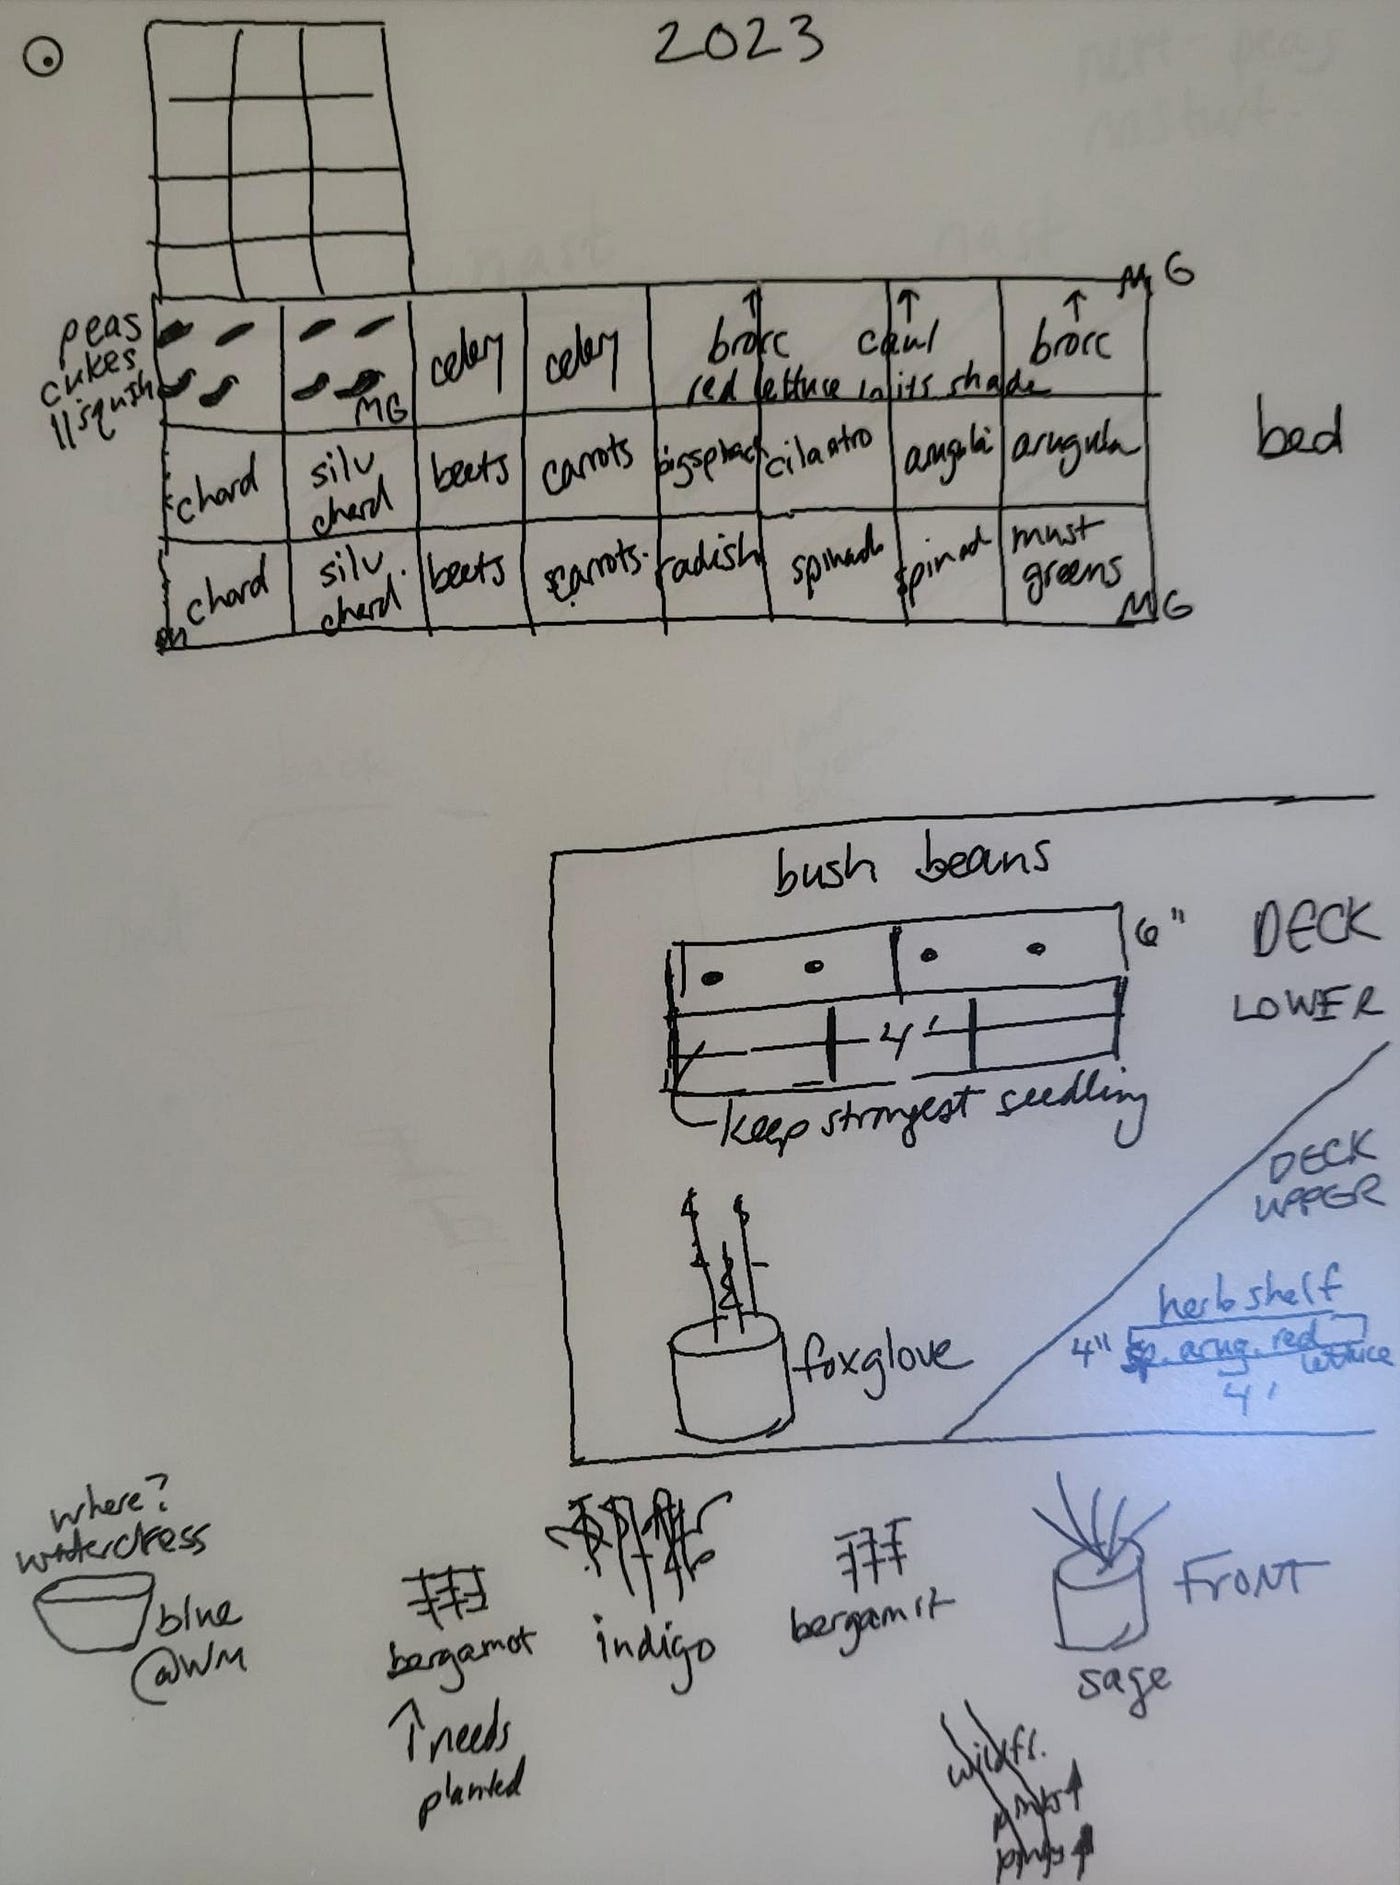 2023
MG
peas
cukes
celery
celery
brocc
caul
brocc
red lettuce in its shade
MG
bed
chard
silv
chard
beets
carrots
cilantro
arugula
arugula
chard
silv.
chard.
beets
carrots.
radish
spinach
spinach
must
greens
MG
bush beans
6"
DECK
LOWER
4'
keep strongest seedling
DECK
UPPER
herb shelf
4" sp. arug. red
lettuce
4'
foxglove
where?
watercress
blue
@WM
bergamot
↑ needs
planted
indigo
bergamot
FRONT
sage
wildfl.